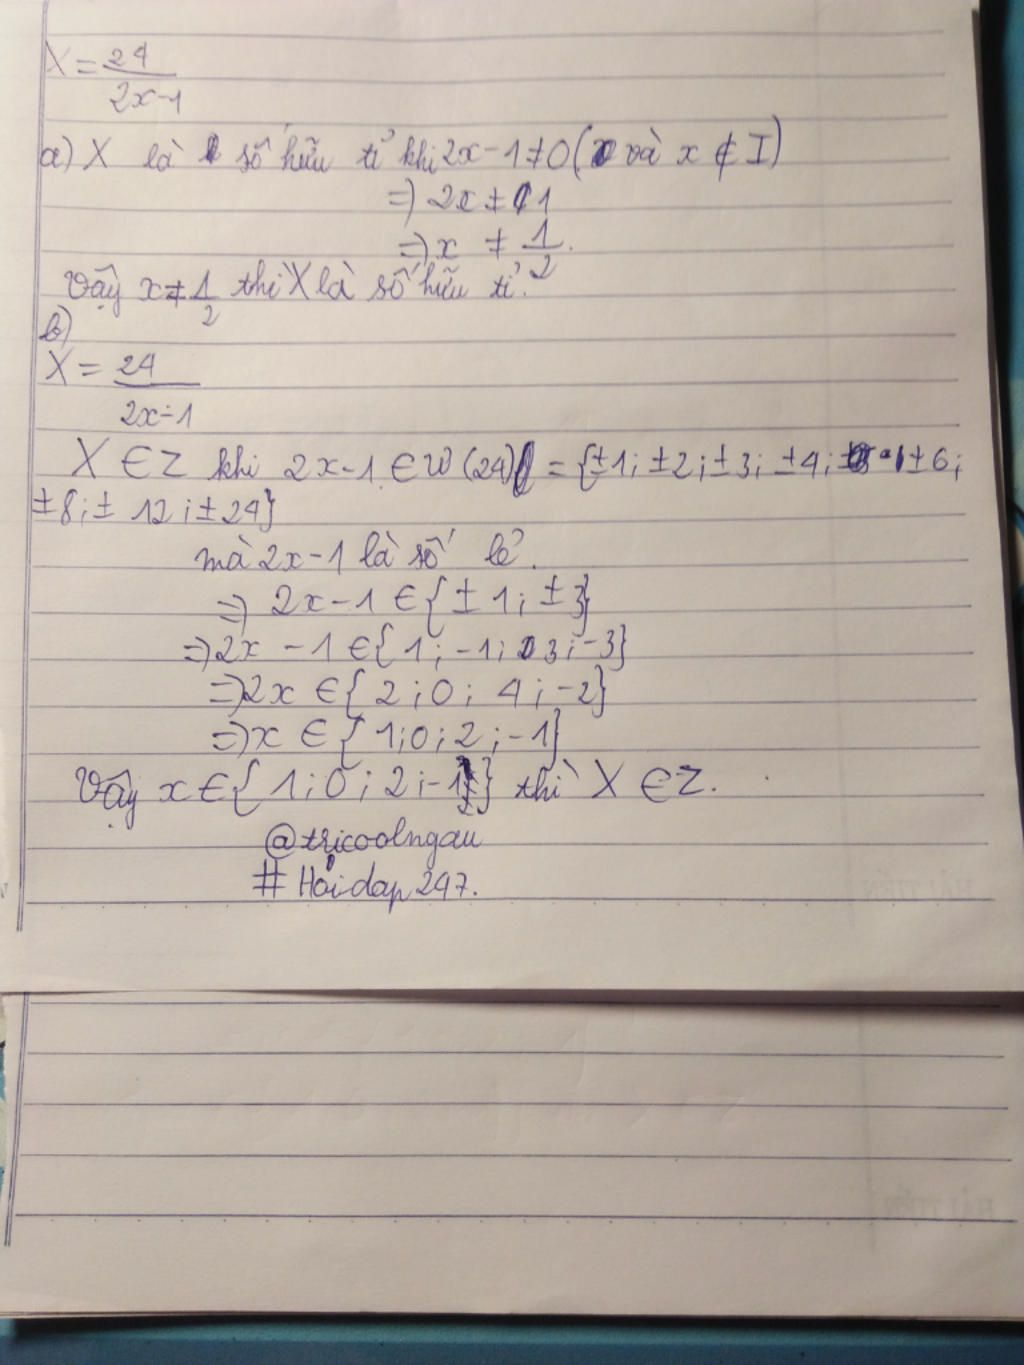 X = 24
2x-1
a) X là số hữu tỉ khi 2x-1≠0 (và x ∉ I)
=> 2x ≠ 1
=> x ≠ 1/2.
Vậy x≠1/2 thì X là số hữu tỉ.
b)
X = 24
2x-1
X ∈ Z khi 2x-1 ∈ Ư(24) = {±1; ±2; ±3; ±4; ±6;
±8; ±12; ±24}
mà 2x-1 là số lẻ.
=> 2x-1 ∈ {±1; ±3}
=> 2x -1 ∈ {1; -1; 3; -3}
=> 2x ∈ {2; 0; 4; -2}
=> x ∈ {1; 0; 2; -1}
Vậy x ∈ {1; 0; 2; -1} thì X ∈ Z.
@tricoolngau
# Hỏidap 247.
HẢI TIẾN
HẢI TIẾN